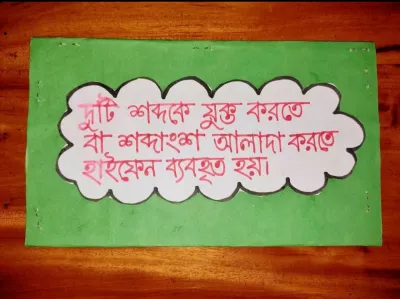 দুটি শব্দকে যুক্ত করতে
বা শব্দাংশ আলাদা করতে
হাইফেন ব্যবহৃত হয়।